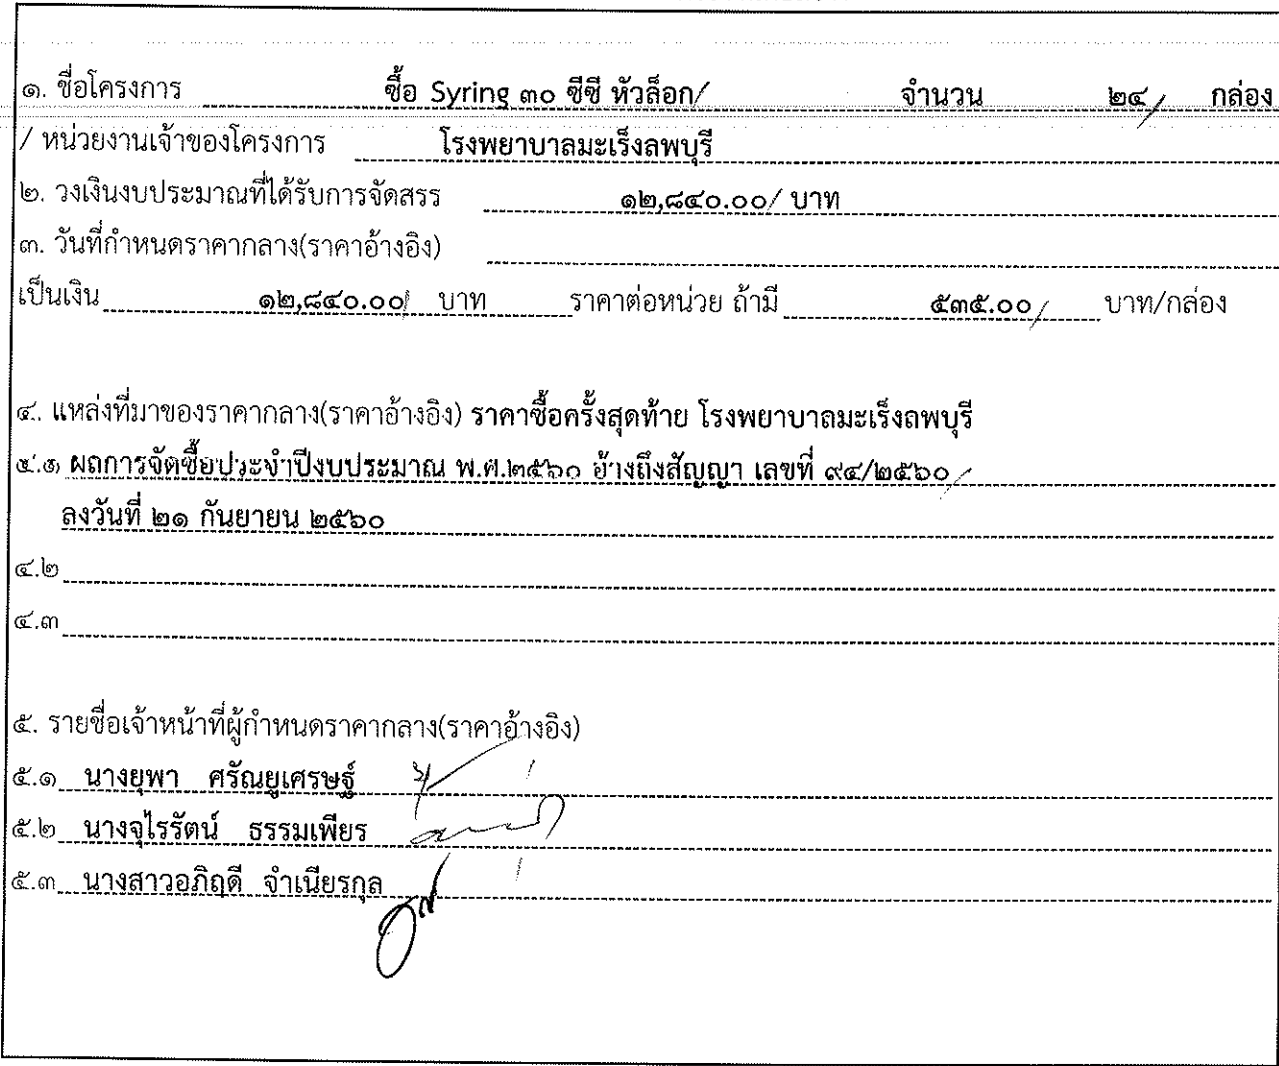 ๑. ชื่อโครงการ ซื้อ Syring ๓๐ ซีซี หัวล็อก/ จำนวน ๒๔/ กล่อง
/ หน่วยงานเจ้าของโครงการ โรงพยาบาลมะเร็งลพบุรี
๒. วงเงินงบประมาณที่ได้รับการจัดสรร ๑๒,๘๔๐.๐๐/ บาท
๓. วันที่กำหนดราคากลาง(ราคาอ้างอิง)
เป็นเงิน ๑๒,๘๔๐.๐๐/ บาท ราคาต่อหน่วย ถ้ามี ๕๓๕.๐๐/ บาท/กล่อง
๔. แหล่งที่มาของราคากลาง(ราคาอ้างอิง) ราคาซื้อครั้งสุดท้าย โรงพยาบาลมะเร็งลพบุรี
๔.๑ ผลการจัดซื้อประจำปีงบประมาณ พ.ศ.๒๕๖๐ อ้างถึงสัญญา เลขที่ ๙๔/๒๕๖๐/
ลงวันที่ ๒๑ กันยายน ๒๕๖๐
๔.๒
๔.๓
๕. รายชื่อเจ้าหน้าที่ผู้กำหนดราคากลาง(ราคาอ้างอิง)
๕.๑ นางยุพา ศรัณยูเศรษฐ์
๕.๒ นางจุไรรัตน์ ธรรมเพียร
๕.๓ นางสาวอภิฤดี จำเนียรกุล